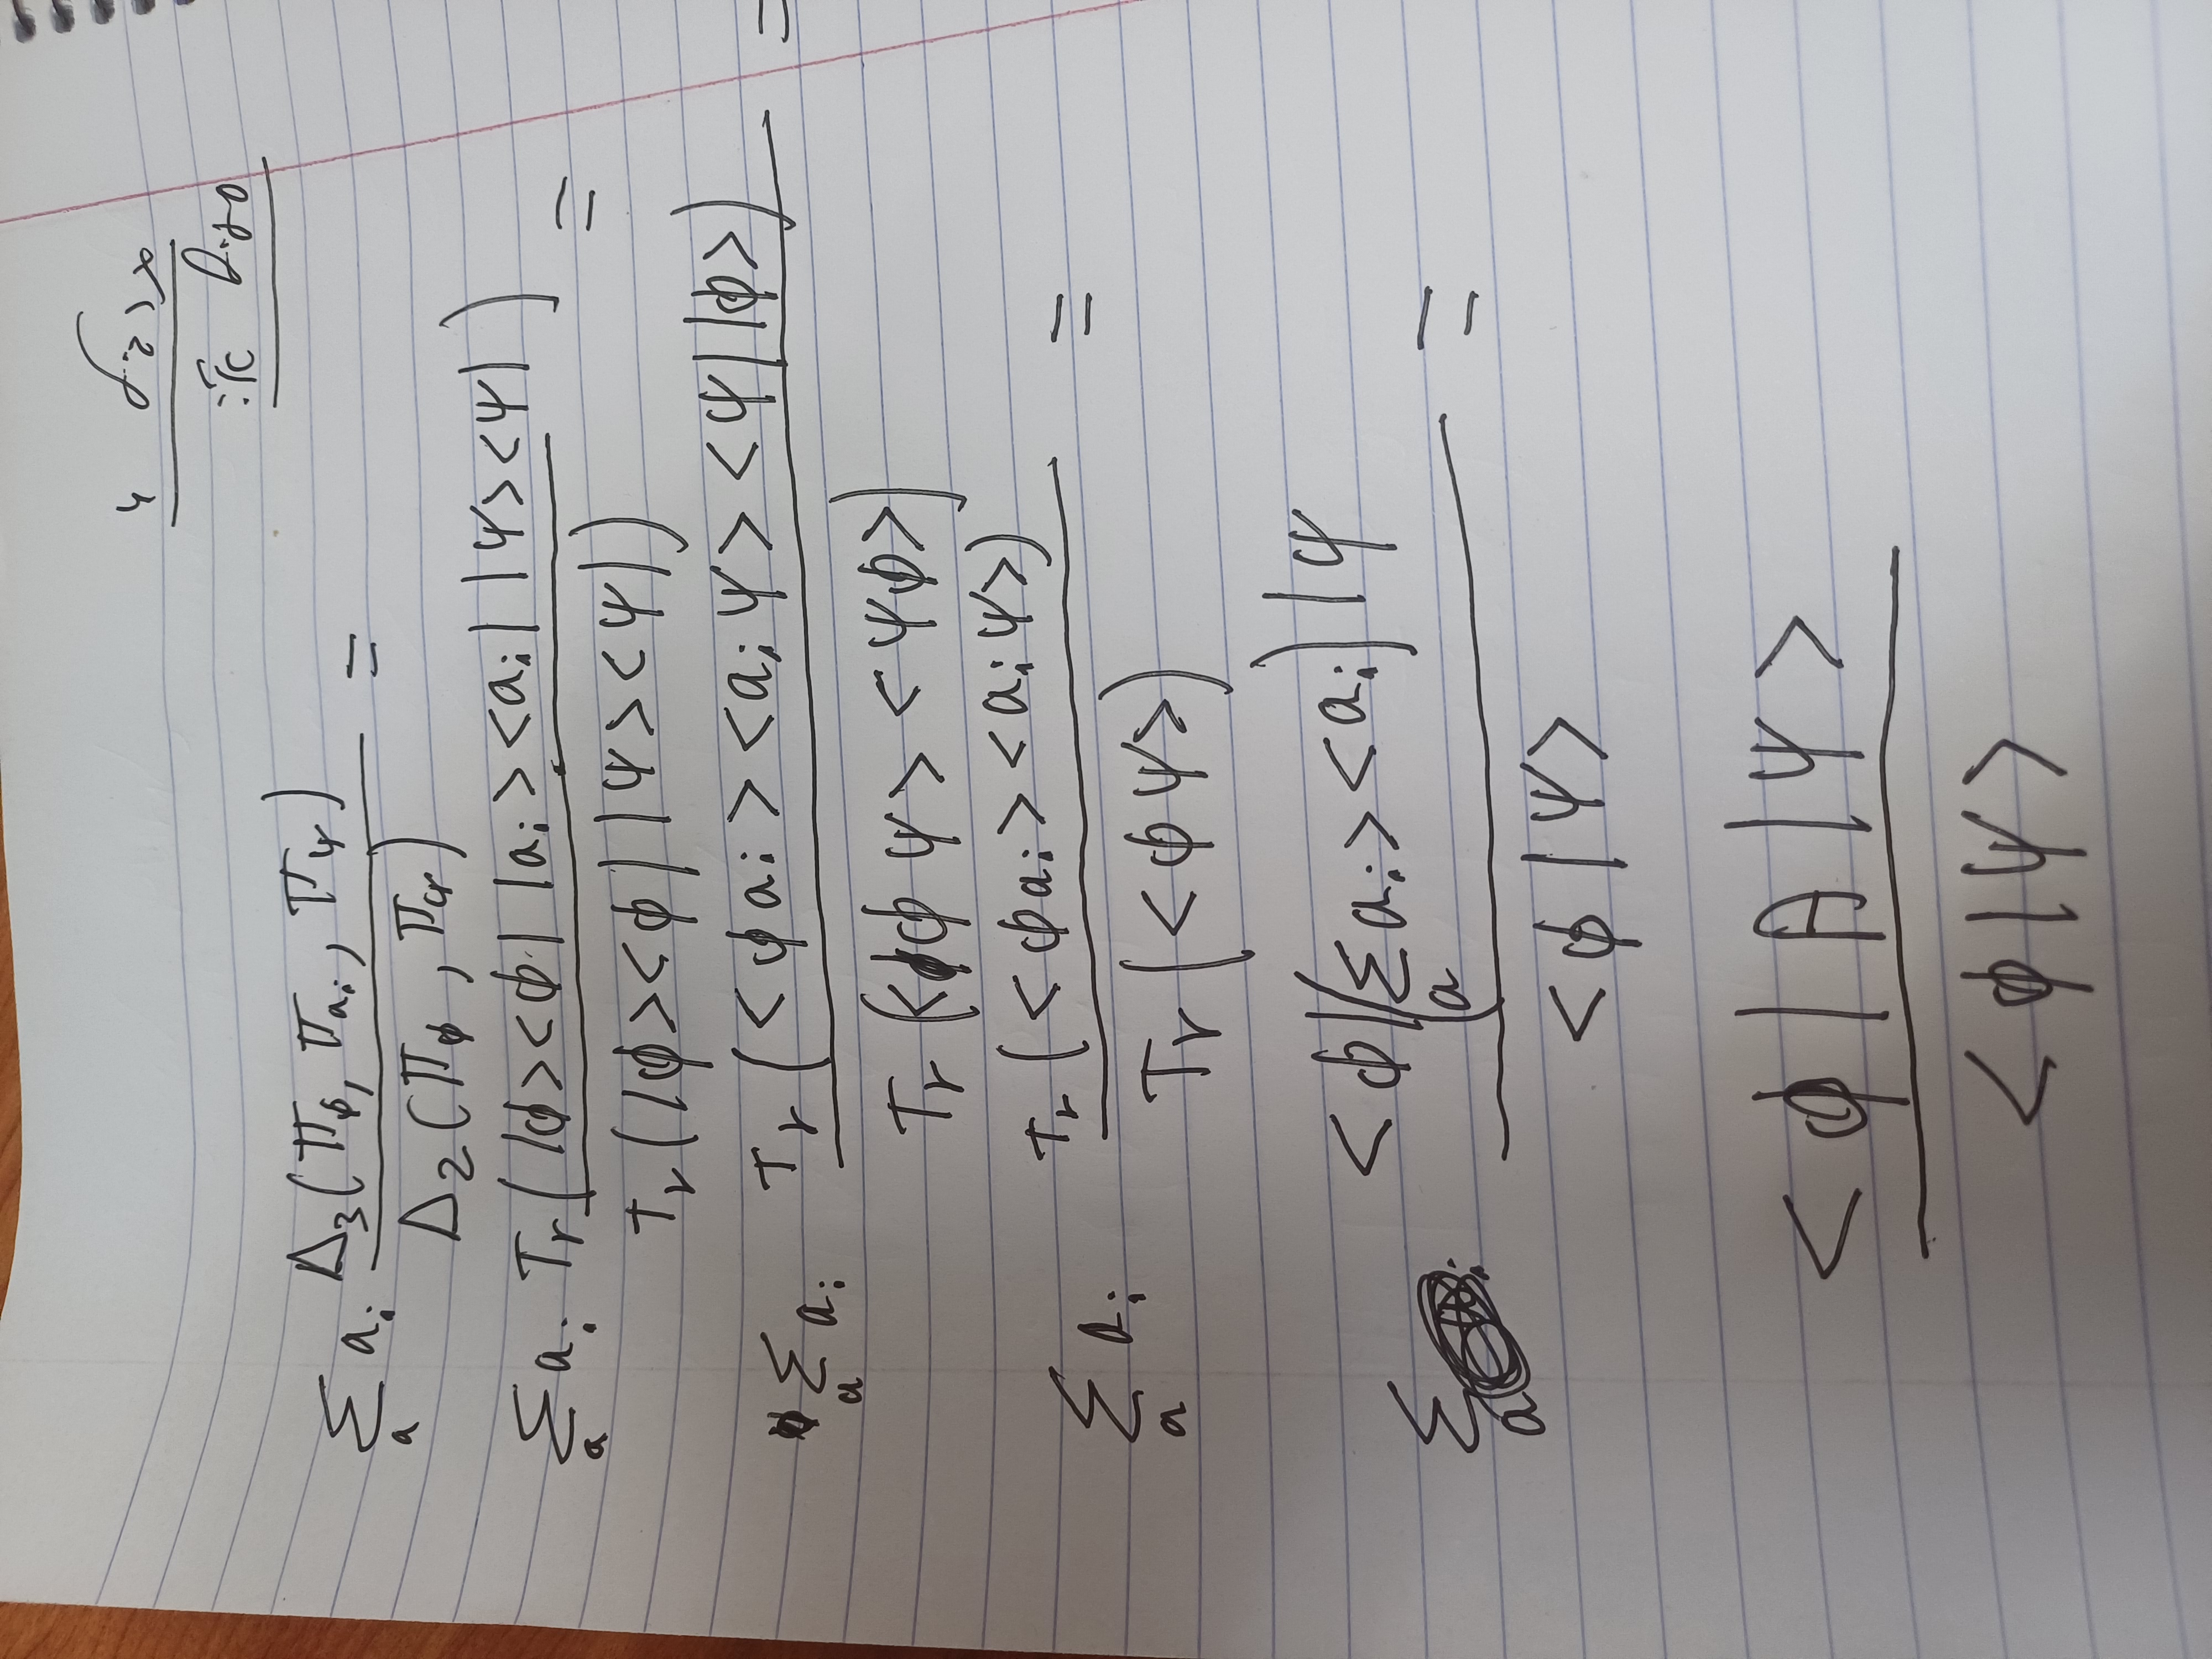 ∑ₐ aᵢ Δ₃(Π_φ, Π_aᵢ, Π_ψ) =
Δ₂(Π_φ, Π_ψ)
∑ₐ aᵢ Tr(|φ><φ| |aᵢ><aᵢ| |ψ><ψ|) =
Tr(|φ><φ| |ψ><ψ|)
∑ₐ aᵢ Tr(<φ aᵢ><aᵢ ψ><ψ| |φ>) =
Tr(<φ ψ><ψφ>)
∑ₐ aᵢ Tr(<φ aᵢ><aᵢ ψ>) =
Tr(<φ ψ>)
∑ₐ <φ|(∑ₐ aᵢ><aᵢ)|ψ =
<φ|ψ>
<φ|A|ψ>
<φ|ψ>